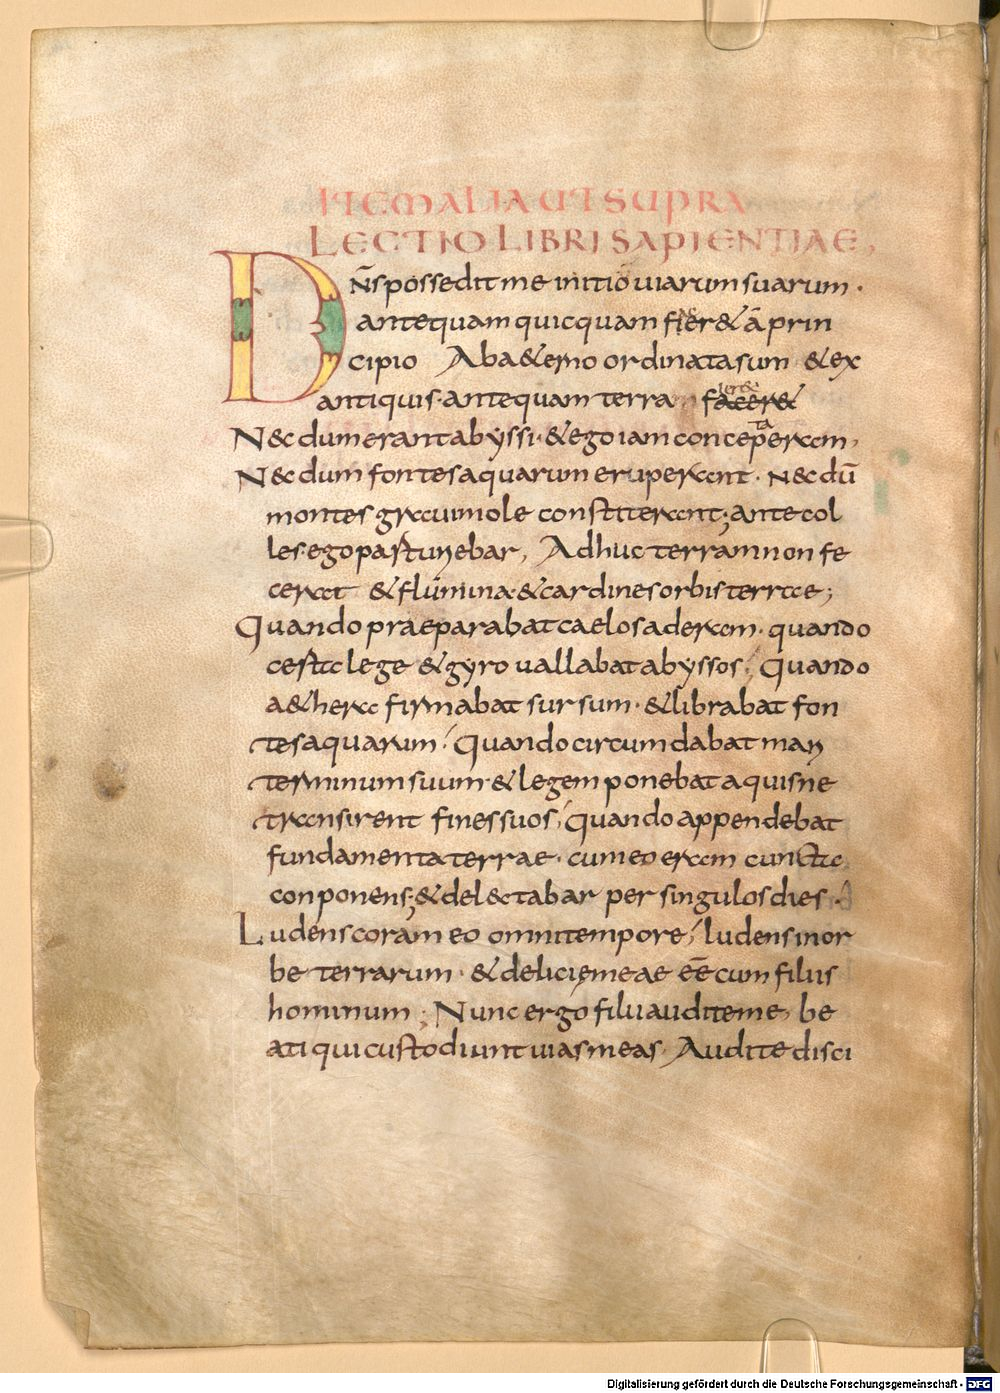 ITEM ALIA UT SUPRA
LECTIO LIBRI SAPIENTIAE,
DN̄s possedit me initio uiarum suarum ·
antequam quicquam fier& a prin
cipio Ab a&erno ordinata sum & ex
antiquis · antequam terra facer&
fier&
Nec dum erant abyssi · & ego iam concep eram,
ta
Nec dum fontes aquarum eruperant · Nec dū
montes graui mole constiterant; ante col
les · ego parturiebar, Adhuc terram non fe
cerat & flumina · & cardines orbis terrae;
Quando praeparabat caelos aderam · quando
certa lege & gyro uallabat abyssos; Quando
a&hera firmabat sursum · & librabat fon
tes aquarum; Quando circumdabat mari
terminum suum · & legem ponebat aquis ne
transirent fines suos; Quando appendebat
fundamenta terrae · cum eo eram cuncta
conponens; & delectabar per singulos dies ·
Ludens coram eo omni tempore; ludens in or
be terrarum · & delicię meae eē cum filiis
hominum; Nunc ergo filii audite me, be
ati qui custodiunt uias meas · Audite disci
Digitalisierung gefördert durch die Deutsche Forschungsgemeinschaft - DFG